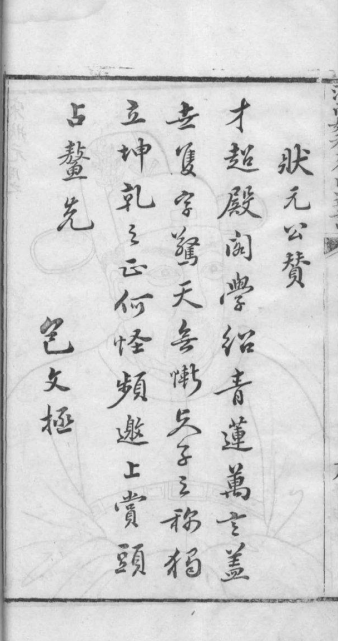 狀元公贊
才超殿閣學紹青蓮萬言蓋
世隻字驚天無慚夫子之稱獨
立坤乾之正何怪頻邀上賞頭
占鰲先
文極